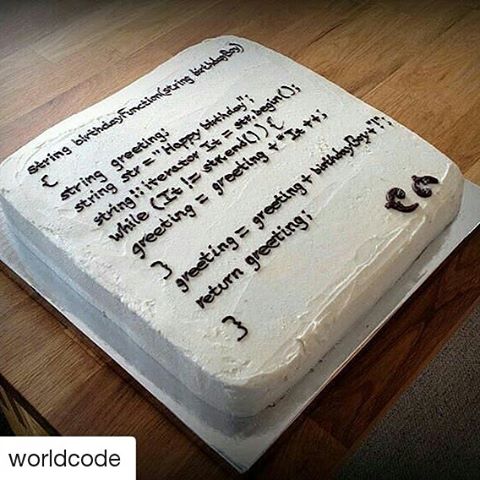 string birthdayFunction(string birthdayBoy)
{
string greeting;
string str = "Happy birthday";
string::iterator It = str.begin();
while (It != str.end()) {
greeting = greeting + *It ++;
}
greeting = greeting + birthdayBoy + '!';
return greeting;
}
worldcode